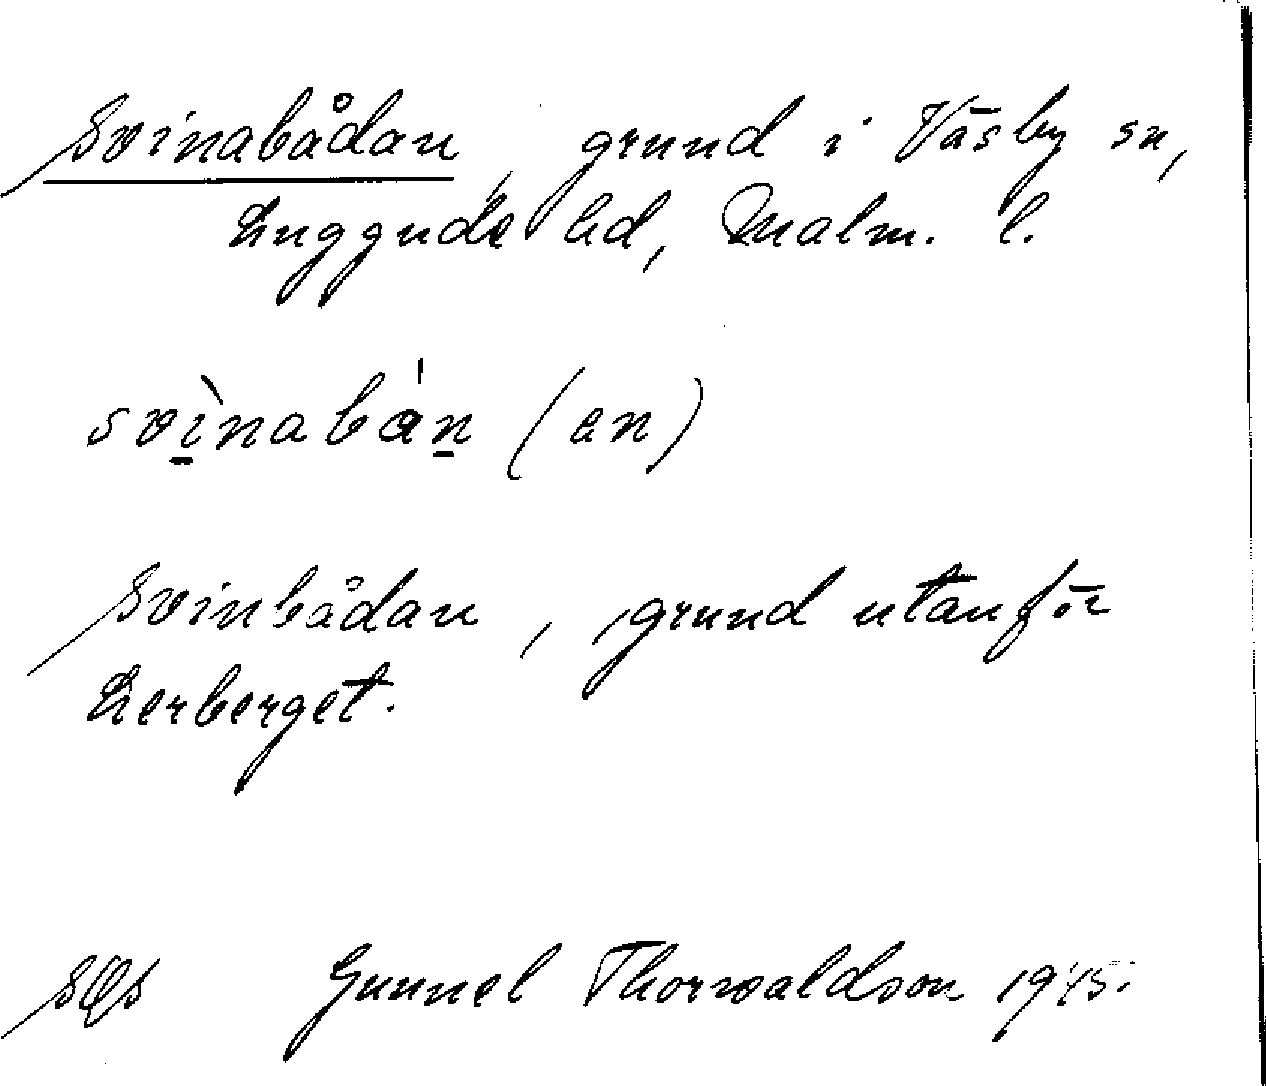 Svinabådan, grund i Väsby sn,
Luggude hd, Malm. l.
svìnabán (en)
Svinbådan, grund utanför
Lerberget.
Gunnel Thorwaldson 1945.